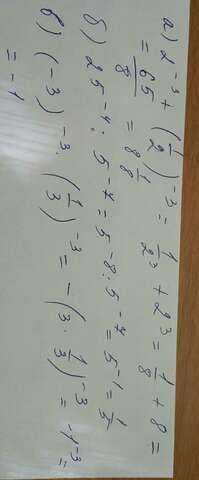 а) 2⁻³ + (1/2)⁻³ = 1/2³ + 2³ = 1/8 + 8 =
= 65/8 = 8 1/8
б) 25⁻⁴ : 5⁻⁷ = 5⁻⁸ : 5⁻⁷ = 5⁻¹ = 1/5
в) (-3)⁻³ · (1/3)⁻³ = -(3 · 1/3)⁻³ = -1⁻³ =
= -1